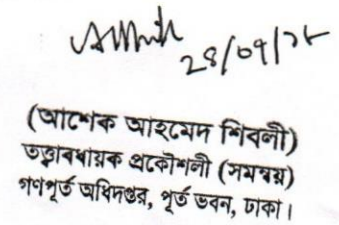 (আশেক আহমেদ শিবলী)
তত্ত্বাবধায়ক প্রকৌশলী (সমন্বয়)
গণপূর্ত অধিদপ্তর, পূর্ত ভবন, ঢাকা।